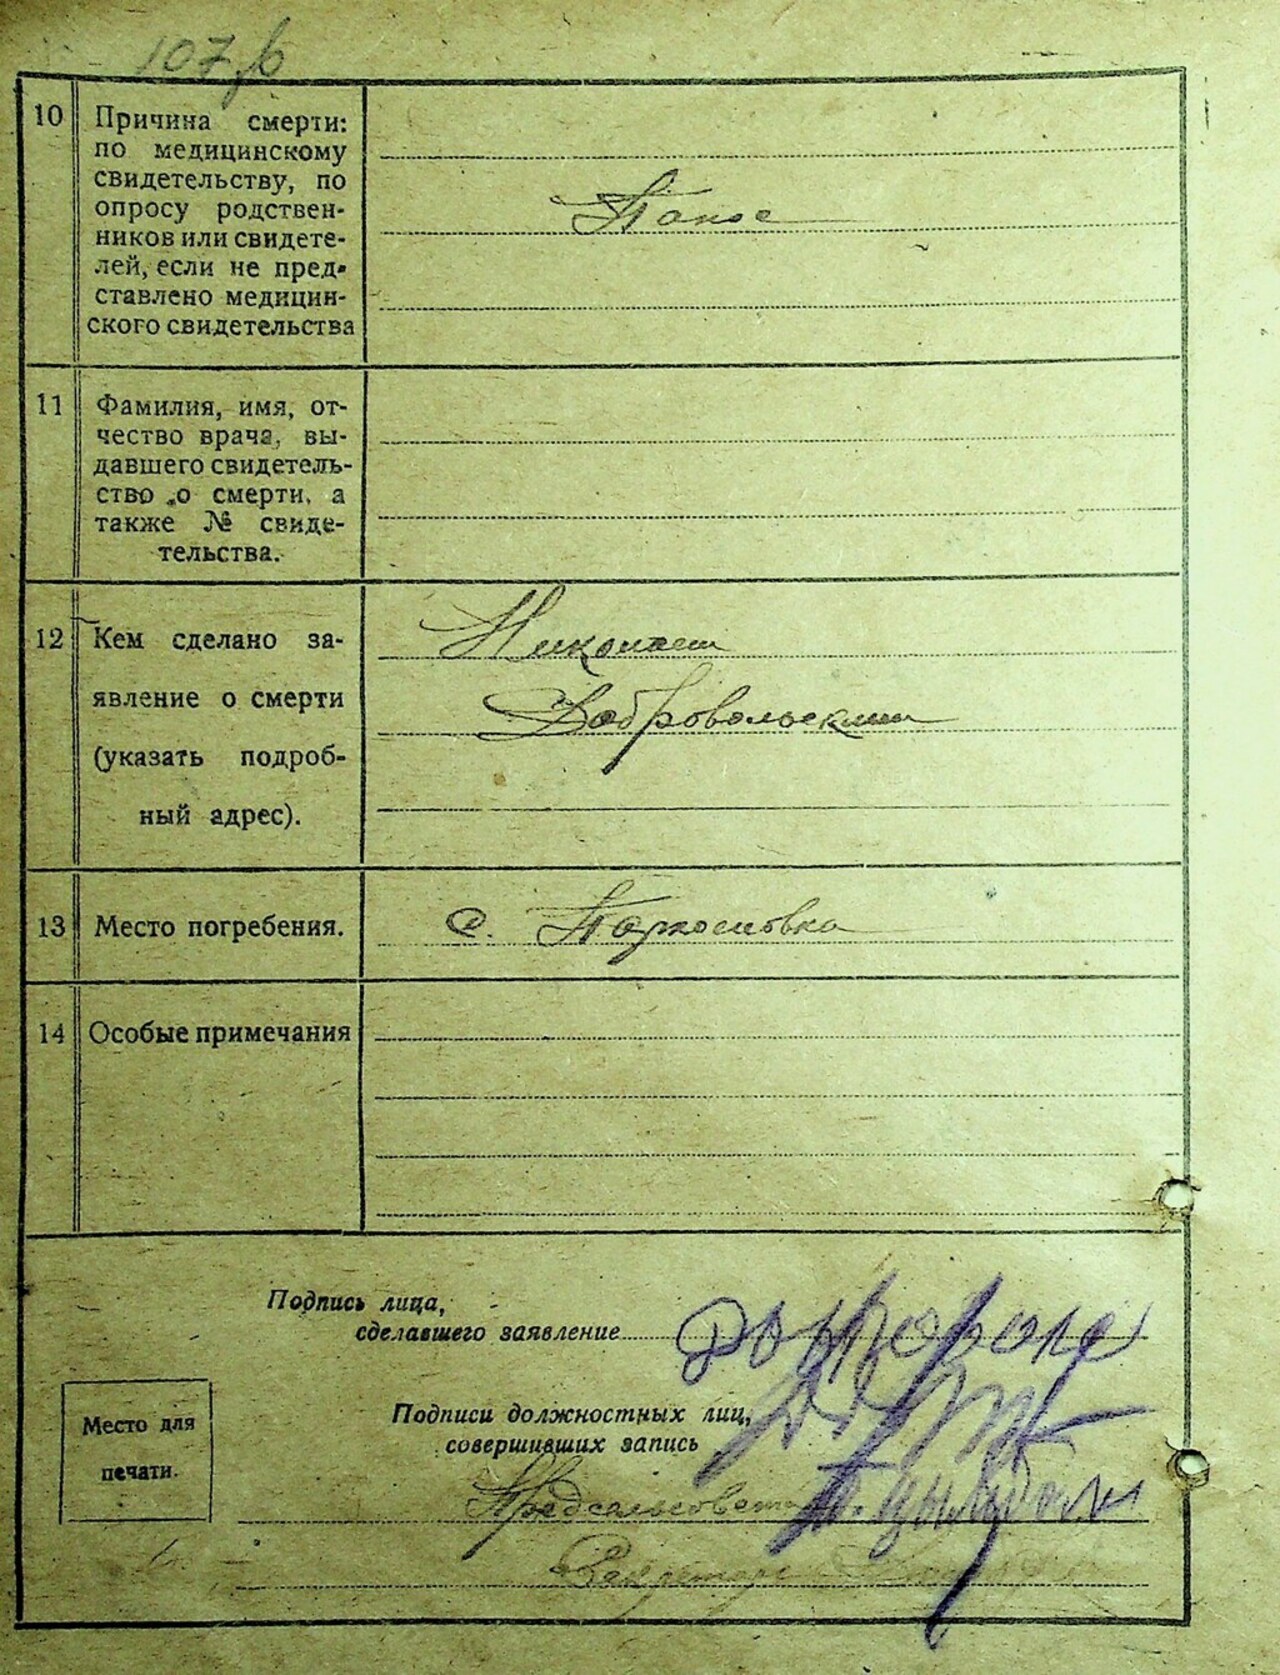 10 Причина смерти:
по медицинскому
свидетельству, по
опросу родствен-
ников или свидете-
лей, если не пред-
ставлено медицин-
ского свидетельства
11 Фамилия, имя, от-
чество врача, вы-
давшего свидетель-
ство о смерти, а
также № свиде-
тельства.
12 Кем сделано за-
явление о смерти
(указать подроб-
ный адрес).
Николаем
Добровольским
13 Место погребения.
с. Паркосовка
14 Особые примечания
Подпись лица,
сделавшего заявление
Подписи должностных лиц,
совершивших запись
Место для
печати.
Предсельсовета
Секретарь